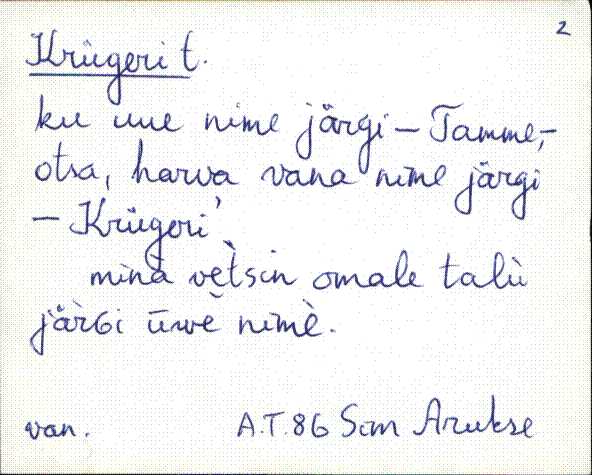 2
Krügeri t.
ku uue nime järgi – Tamme,-
otsa, harva vana nime järgi
– Krügeri'
minà vètsin omale talù
järGi ūwè nimè.
van. A.T.86 Sim Arukse